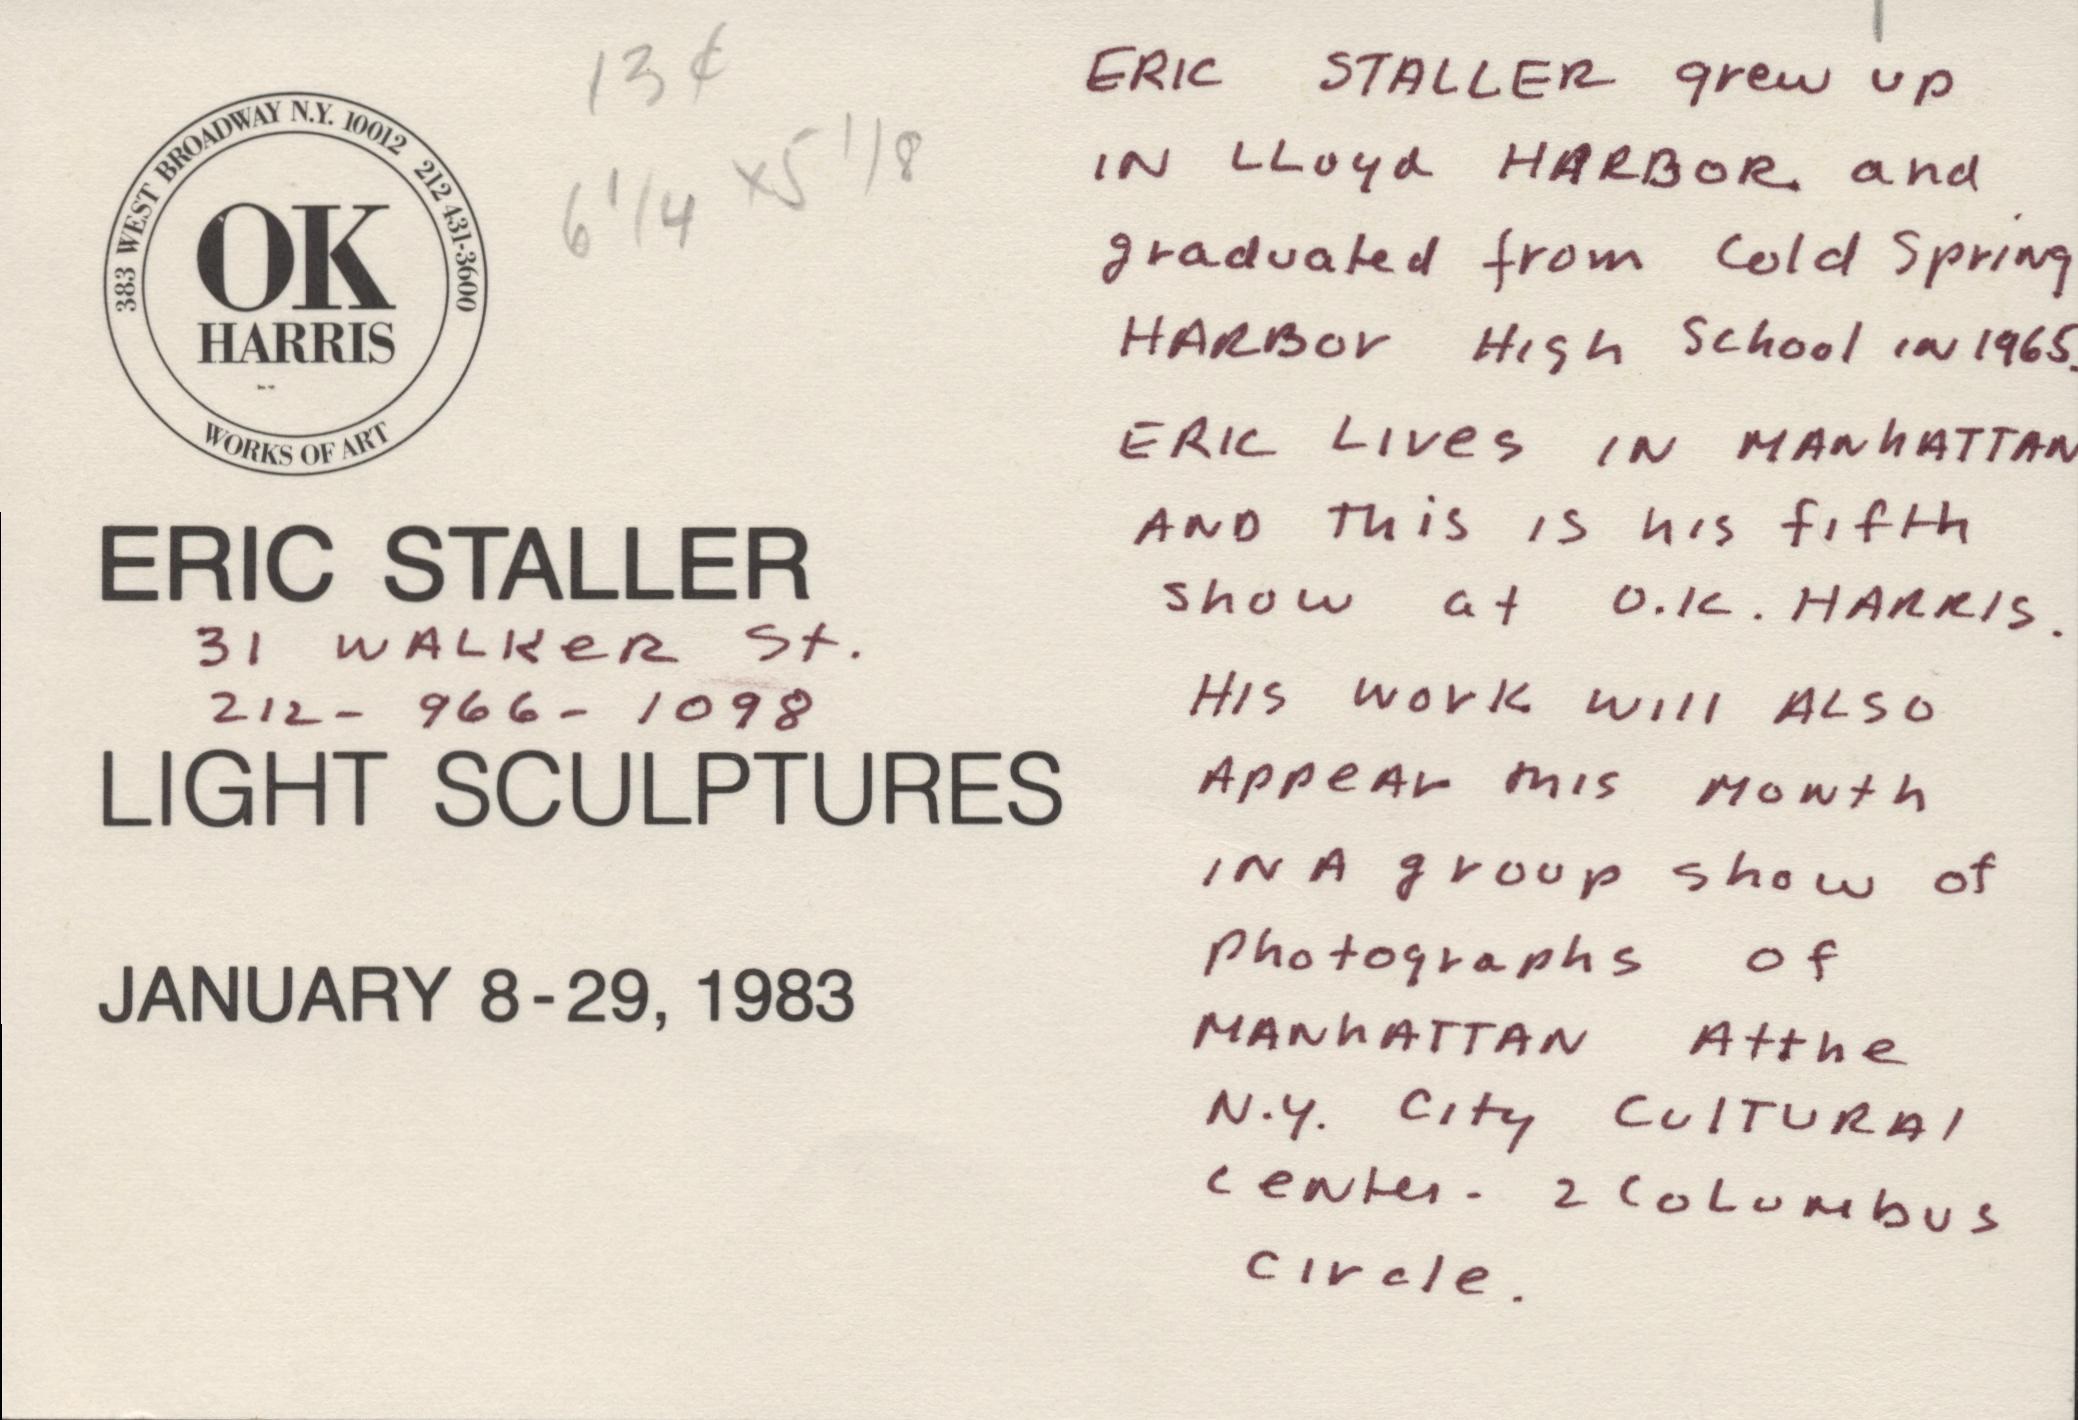 13¢
6 1/4 x5 1/8
383 WEST BROADWAY N.Y. 10012 212 431-3600
OK
HARRIS
WORKS OF ART
ERIC STALLER
31 WALKER St.
212- 966- 1098
LIGHT SCULPTURES
JANUARY 8-29, 1983
ERIC STALLER grew up
IN LLoyd HARBOR and
graduated from Cold Spring
HARBor High School in 1965.
ERIC Lives IN MANhATTAN
AND This is his fifth
show at O.K. HARRIS.
His work will ALSO
AppeAr This Month
IN A group show of
photographs of
MANhATTAN At the
N.Y. City CulTURAl
CeNter. 2 CoLumbus
Circle.